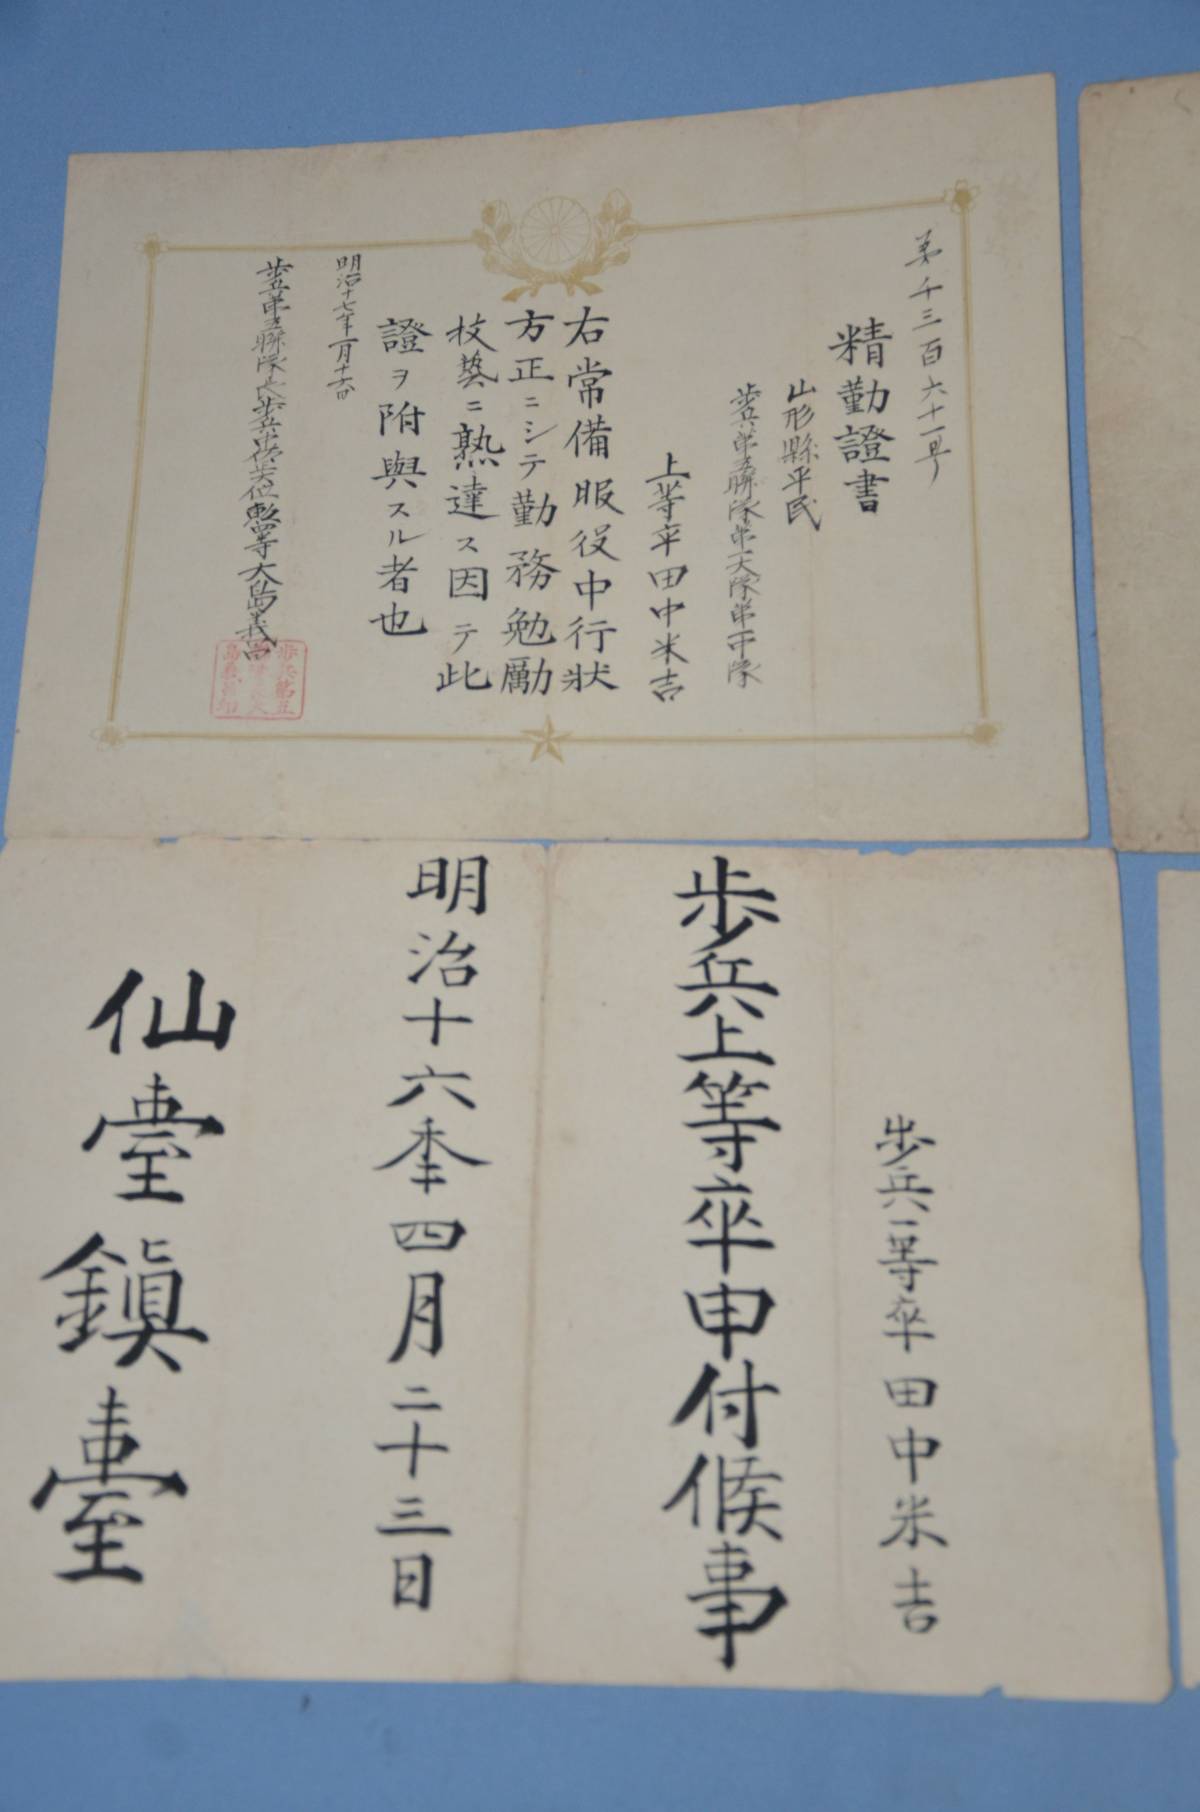 第千三百六十一号
精勤證書
山形縣平民
歩兵第五聯隊第一大隊第一中隊
上等卒田中米吉
右常備服役中行状
方正ニシテ勤務勉勵
技藝ニ熟達ス因テ此
證ヲ附與スル者也
明治十七年一月十六日
歩兵第五聯隊長歩兵中佐従六位勲四等大島義昌
歩兵一等卒田中米吉
歩兵上等卒申付候事
明治十六年四月二十三日
仙臺鎮臺